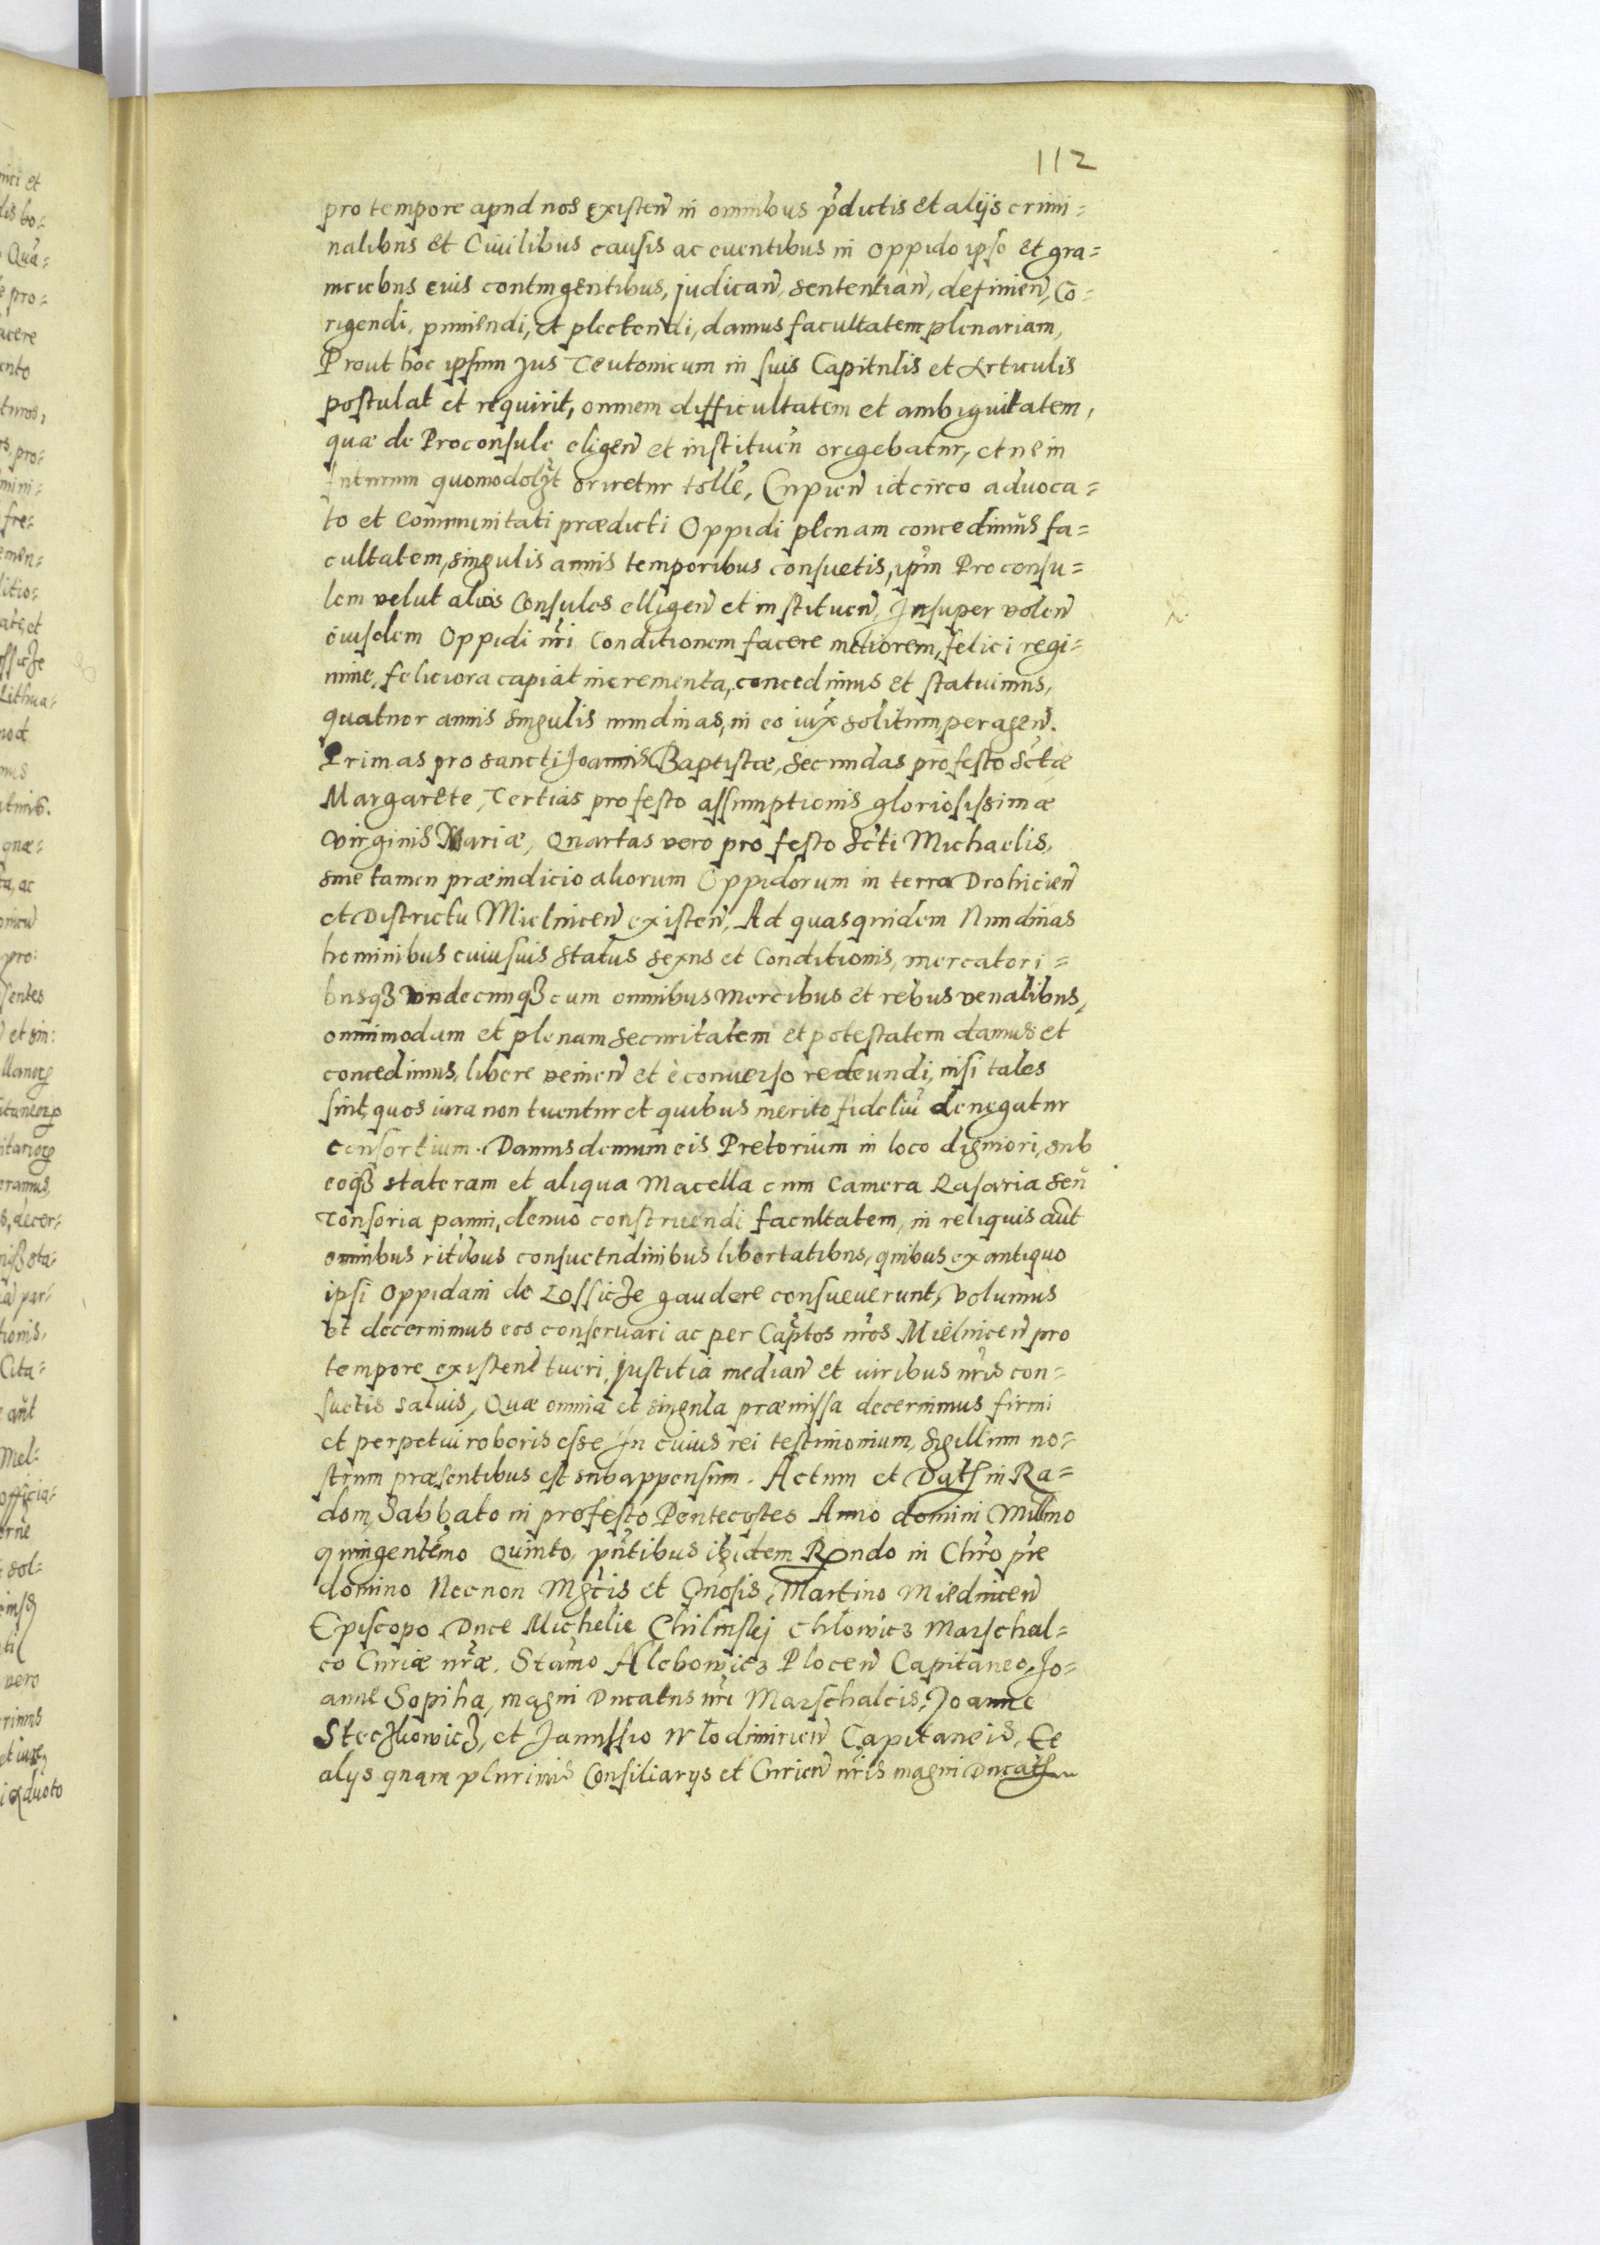 112
pro tempore apud nos existen in omnibus pdictis et alijs crimi=
nalibus et Ciuilibus causis ac euentibus in oppido ipso et gra=
niciebus eius contingentibus, judican, sententian, definien, Co=
rigendi, puniendi, et plectendi, damus facultatem plenariam,
Prout hoc ipsum Jus Teutonicum in suis Capitulis et Articulis
postulat et requirit, omnem difficultatem et ambiguitatem,
quæ de Proconsule eligen et instituen origebatur, et ne in
futurum quomodolibt oriretur tolle, Cupien idcirco aduoca=
to et Communitati prædicti Oppidi plenam concedimus fa=
cultatem, singulis annis temporibus consuetis, ipm Proconsu=
lem velut alios Consules elligen et instituen, Insuper volen
eiusdem Oppidi nri Conditionem facere meliorem, felici regi=
mine, feliciora capiat incrementa, concedimus et statuimus,
quatuor annis singulis nundinas, in eo iux solitum peragen.
Primas pro sancti Joannis Baptistæ, secundas pro festo Sctæ
Margarete, Tertias pro festo assumptionis gloriosissimæ
virginis Mariæ, Quartas vero pro festo Scti Michaelis,
sine tamen præiudicio aliorum Oppidorum in terra Drohicien
et Districtu Mielnicen existen, Ad quas quidem Nundinas
hominibus cuiusuis status sexus et Conditionis, mercatori=
busq3 vndecunq3 cum omnibus mercibus et rebus venalibus,
omnimodam et plenam securitatem et potestatem damus et
concedimus, libere venien et è conuerso redeundi, nisi tales
sint, quos iura non tuentur et quibus merito fideliu denegatur
consortium. Damus demum eis Pretorium in loco digniori, sub
eoq3 stateram et aliqua Macella cum Camera Rasoria seu
Tonsoria panni, denuo construendi facultatem, in reliquis aut
omnibus ritibus consuetudinibus libertatibus, quibus ex antiquo
ipsi Oppidani de Lossicze gaudere consueuerunt, volumus
et decernimus eos conseruari ac per Captos nros Mielnicen pro
tempore existent tueri, justitia median et iuribus nris con=
suetis saluis, Quæ omnia et singula præmissa decernimus firmi
et perpetui roboris esse In cuius rei testimonium, sigillum no=
strum præsentibus est subappensum. Actum et Dat in Ra=
dom, Sabbato in profesto Pentecostes Anno domini Millmo
quingentemo Quinto, pntibus ibidem Rndo in Chro pre
domino Necnon Mgcis et Gnosis, Martino Miednicen
Episcopo Duce Michelie Chlinskj Chlowicz Marschal=
co Curiæ nræ. Stamo Alebowicz Plocen Capitaneo, Jo=
anne Sopiha, magni Ducatus nri Marschalcis, Joanne
Steczkowicz, et Janussio Wlodimirien Capitaneis, Ee
alys quam plurimis Consiliarys et Curien nris magni Ducat